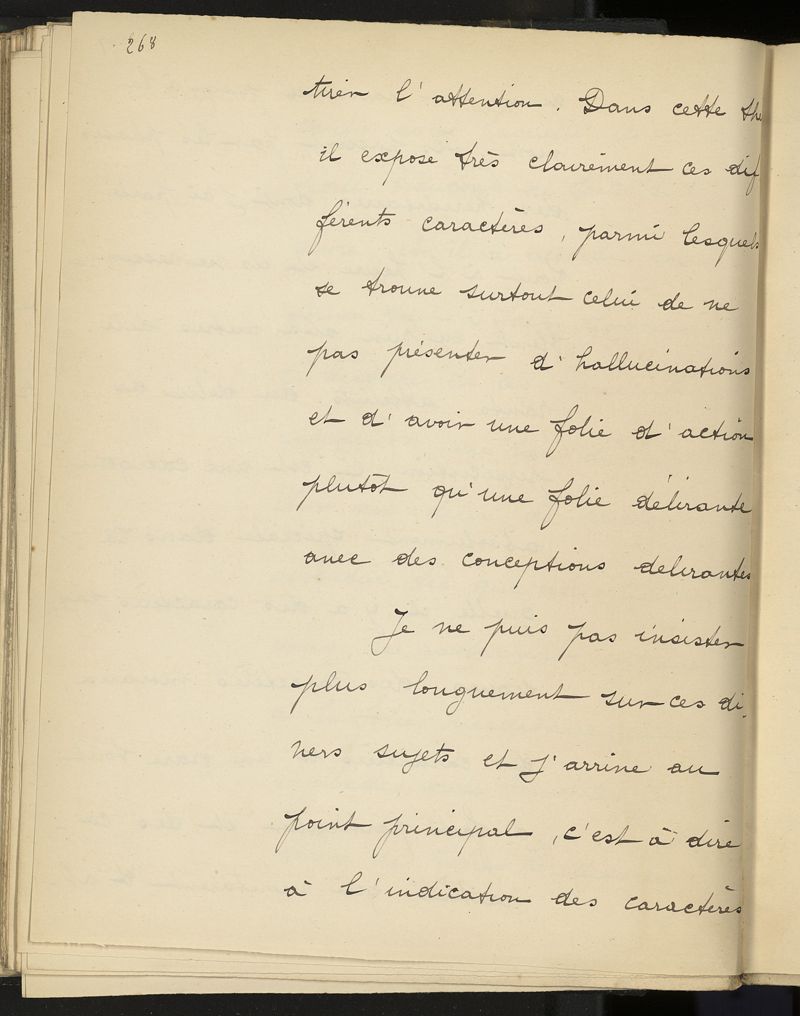 268
tirer l'attention. Dans cette thè
il expose très clairement ces dif
férents caractères, parmi lesquels
se trouve surtout celui de ne
pas présenter d'hallucinations
et d'avoir une folie d'action
plutôt qu'une folie délirante
avec des conceptions délirantes
Je ne puis pas insister
plus longuement sur ces di.
vers sujets et j'arrive au
point principal, c'est à dire
à l'indication des caractères